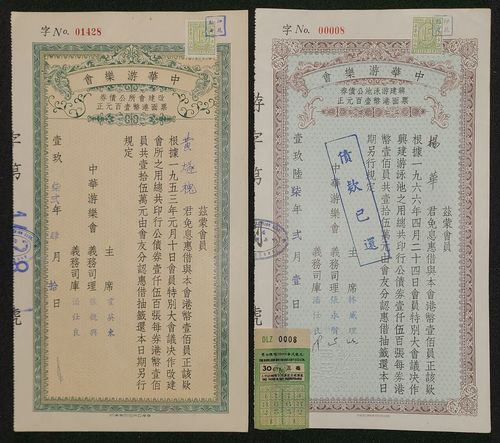 字 No. 01428
中華游樂會
改建會所公債券
票面港幣壹百元正
茲蒙會員
黃
君免息惠借與本會港幣壹佰員正該欵
根據一九五三年元月十日會員特別大會議决作改建
會所之用總共印行公債券壹仟伍百張每券港幣壹佰
員共壹拾伍萬元由會友分認惠借抽籤還本日期另行
規定
中華游樂會 主席 霍英東
義務司理
義務司庫 潘仕良
壹玖柒貳年肆月拾日
游字第 1428 號
字 No. 00008
中華游樂會
興建游泳池公債券
票面港幣壹百元正
茲蒙會員
楊華
君免息惠借與本會港幣壹佰員正該欵
根據一九六六年四月二十四日會員特別大會議决作
興建游泳池之用總共印行公債券壹仟伍百張每券港
幣壹佰員共壹拾伍萬元由會友分認惠借抽籤還本日
期另行規定
債欵已還
中華游樂會 主席
義務司理
義務司庫 潘仕良
壹玖陸柒年貳月壹日
游字第 號
DLZ 0008
30 CTS. 三毫